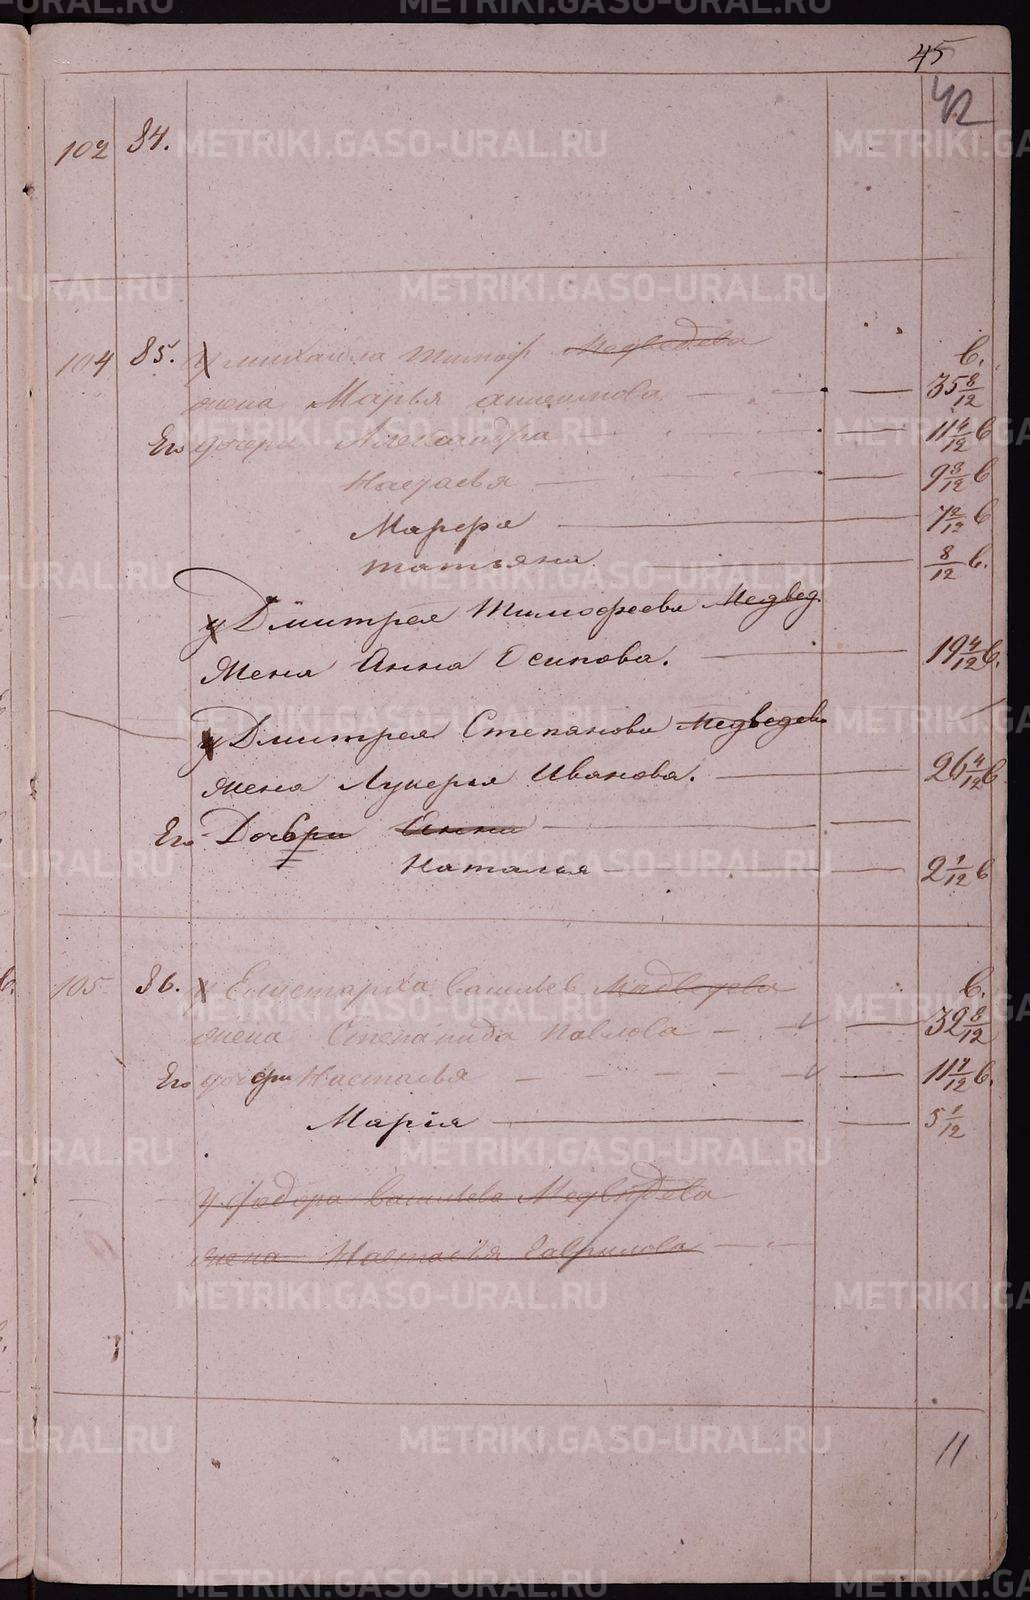 45
42
102 84.
104 85. У михаила тимоф Медведева в.
жена Марья анисимова 35 8/12
Его дочери Александра 11 4/12 в
Настасья 9 3/12 в
Марфа 7 2/12 в
татьяна 8/12 в.
у Дмитрея Тимофеева Медвед.
Жена Анна Осипова. 19 4/12 в.
у Дмитрея Степанова Медведев
жена Лукерья Иванова. 26 4/12 в
Его Дочери Анна
Наталья 2 1/12 в
105 86. У Елистарха васильев Медведева в.
жена Степанида Павлова 32 8/12
Его дочери Настасья 11 7/12 в.
Марія 5 1/12
у Федора васильева Медведева
жена Настасья Гаврилова
11
METRIKI.GASO-URAL.RU